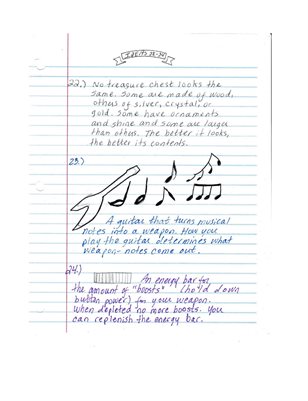 IDEAS 22-24
22.) No treasure chest looks the
same. Some are made of wood,
others of silver, crystal, or
gold. Some have ornaments
and shine and some are larger
than others. The better it looks,
the better its contents.
23.)
A guitar that turns musical
notes into a weapon. How you
play the guitar determines what
weapon-notes come out.
24.)
An energy bar for
the amount of "boosts" (hold down
button power) for your weapon.
When depleted no more boosts. You
can replenish the energy bar.